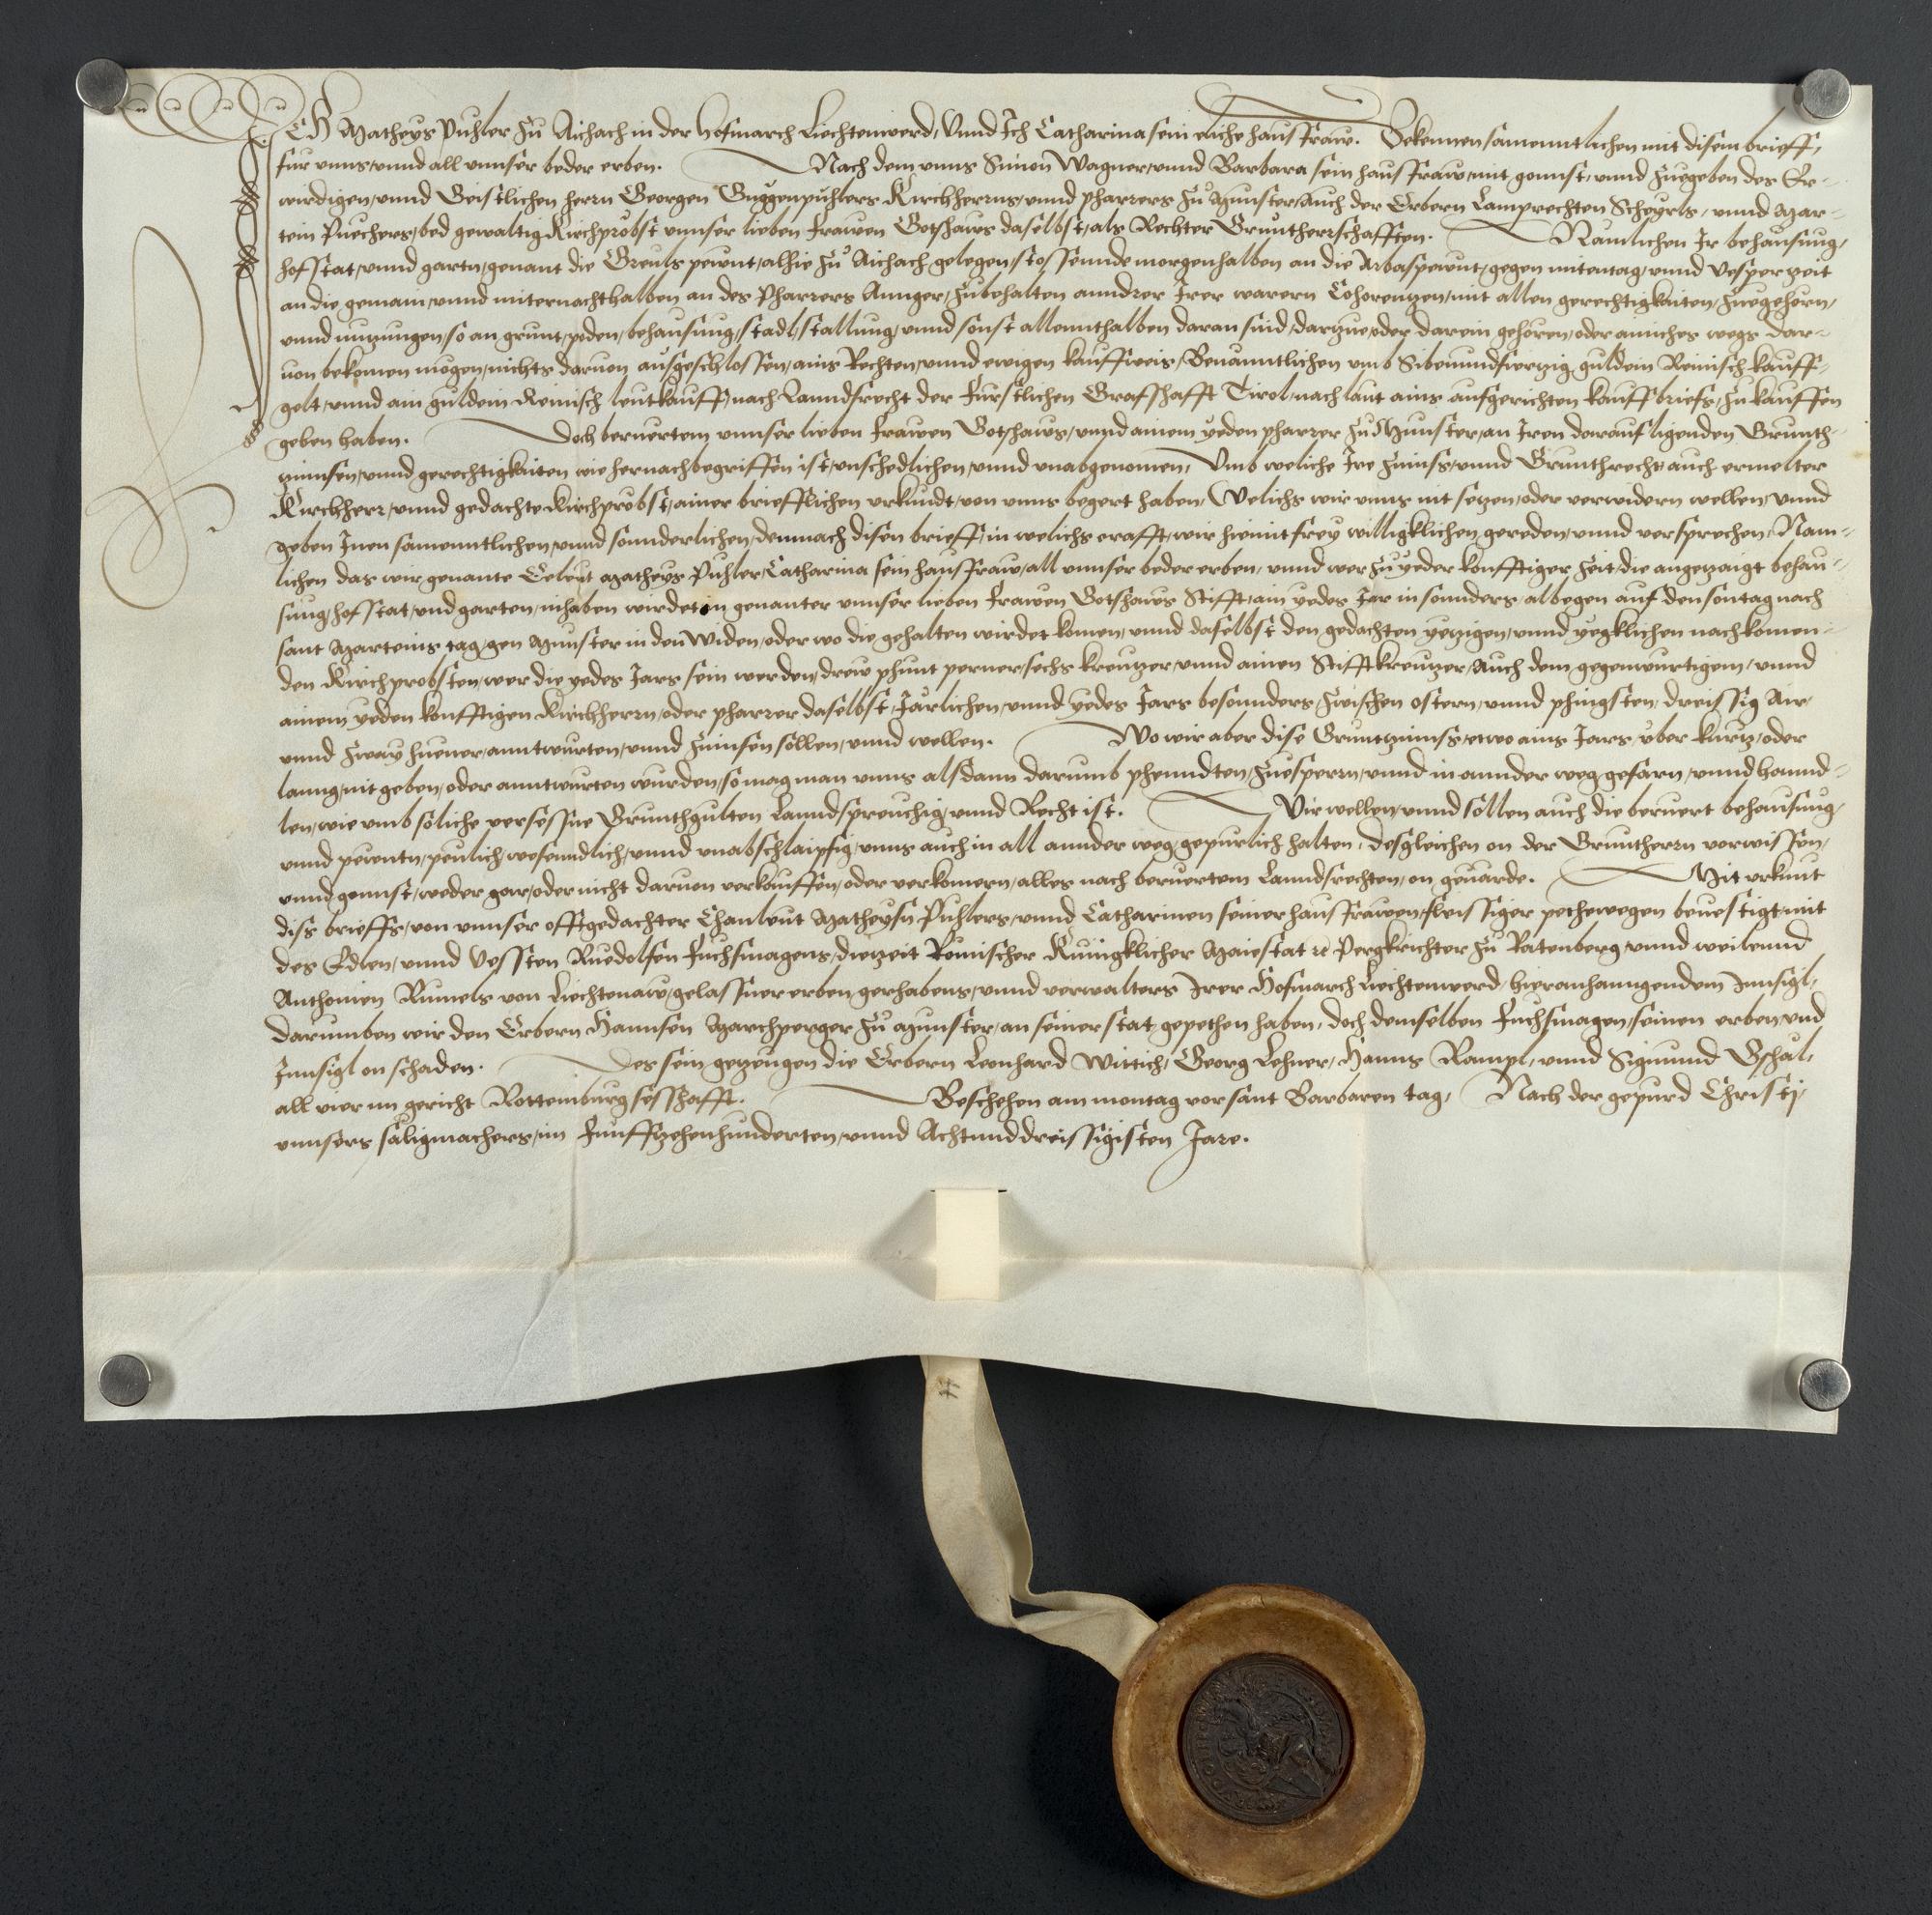 ICH Matheys Puhler zu Aichach in der Hofmarch Liechtenwerd, Unnd Ich Catharina sein eliche hausfraw. Bekennen samenntlichen mit disem brieff,
fur unns, unnd all unnser beder erben. Nach dem unns Simon Wagner, unnd Barbara sein hausfraw, mit gonnst, unnd zuegeben des Er-
wirdigen, unnd Geistlichen herrn Georgen Guggenpuhlers Kirchherrns, unnd pharrers zu Munster, Auch der Erbern Lamprechten Scheyrls, unnd Mar-
tein Puechers, bed gewaltig Kirchprobst unnser lieben frawen Gotshaws daselbst, als Rechter Gruntherrschafften. Namlichen Ir behausung,
hofstat, unnd gartn, genant die Greuls pewnt, alhie zu Aichach gelegen, stossennde morgenhalben an die Arbaspewnt, gegen mitentag, unnd vesperzeit
an die gemain, unnd miternachthalben an des Pharrers Annger, zubehalten anndrer Irer warern Coherentzen, mit allen gerechtigkaiten, zuegehorn,
unnd nutzungen, so an grunt, poden, behausung, stadl, stallung, unnd sonst allennthalben daran sind, dartzue, oder darein gehoren, oder ainiches wegs dar-
von bekomen mogen, nichts davon ausgeschlossen, ains Rechten, unnd ewigen kauffweis, Benanntlichen umb Sibenundfiertzig guldein Reinisch kauff-
gelt, unnd ain guldein Reinisch leutkauff, nach Lanndsrecht der Furstlichen Grafschafft Tirol, nach laut ains aufgerichten kauffbriefs, zu kauffen
geben haben. Doch berurtem unnser lieben frawen Gotshaws, unnd ainem yeden pharrer zu Munster, an Iren darauf ligenden Grunth-
zinnsen, unnd gerechtigkaiten wie hernach begriffen ist, unschedlichen, unnd unabgenomen, Umb weliche Ire zinnss, unnd Grunthrecht auch ermelter
Kirchherr, unnd gedachte Kirchprobst, ainer briefflichen urkundt, von unns begert haben, Welichs wir unns nit setzen, oder verwidern wellen, unnd
geben Inen samenntlichen, unnd sonnderlichen, demnach disen brieff, in welichs crafft, wir hiemit frey willigklichen gereden, unnd versprechen, Nam-
lichen das wir genante Eeleut Matheys Puhler, Catharina sein hausfraw, all unnser beder erben, unnd wer zu yeder konfftiger zeit, die angetzaigt behau-
sung, hofstat, und garten, inhaben wirdet in genanter unnser lieben frawen Gotshaws Stifft, ain yedes Jar in sonnders, albegen auf den sontag nach
sant Marteins tag, gen Munster in den Widen, oder wo die gehalten wirdet komen, unnd daselbst den gedachten yetzigen, unnd yegklichen nachkomen-
den Kirchprobsten, wer die yedes Jars sein werden, drew phunt perner, sechs kreutzer, unnd ainen Stifftkreutzer, Auch dem gegenwurtigem, unnd
ainem yeden konfftigen Kirchherrn, oder pharrer daselbst, Järlichen, unnd yedes Jars besonnders, zwischen ostern, unnd phingsten, dreissig Air,
unnd zway huener, anntwurten, unnd zinnsen sollen, unnd wellen. Wo wir aber dise Gruntzinnss, etwo ains Jars, uber kurtz, oder
lanng, nit geben, oder anntwurten wurden, so mag man unns alsdann darumb phenndten, zuesperrn, unnd in annder weg gefarn, unnd hannd-
len, wie umb soliche versessne Grunthgulten Lanndspreuchig, unnd Recht ist. Wir wellen, unnd sollen auch die beruert behausung,
unnd pewntn, peulich, wesenndlich, unnd unabschlaipfig, unns auch in all annder weg, gepurlich halten, desgleichen on der Gruntherrn vorwissen,
unnd gonnst, weder gar, oder nicht davon verkauffen, oder verkomern, alles nach beruertem Lanndsrechten, on gevarde. Mit urkunt
dis brieffs, von unnser offtgedachter Chanleut Matheysn Puhlers, unnd Catharinen seiner hausfrawen, fleissiger pethewegen bevestigt, mit
des Edlen, unnd Vessten Ruedolfen Fuchsmagens, dietzeit Romischer Kunigklicher Maiestat etc Pergkrichter zu Ratenberg, unnd weilennd
Anthonien Rumels von Liechtenaw, gelassner erben, gerhabens, unnd verwalters Irer Hofmarch Liechtenwerd, hieranhanngendem Innsigl,
darumben wir den Erbern Hannsen Marchperger zu Munster, an seiner stat gepethen haben, doch demselben Fuchsmagen, seinen erben, und
Innsigl on schaden. Des sein getzeugen die Erbern Leonhard Wittich, Georg Lehner, Hanns Rampl, unnd Sigmund Gschal,
all vier im gericht Rottemburg sesshafft. Beschehen am montag vor sant Barbaren tag, Nach der gepurd Christj,
unnsers säligmachers, im Funffzehenhunderten, unnd Achtunddreissigisten Jare.